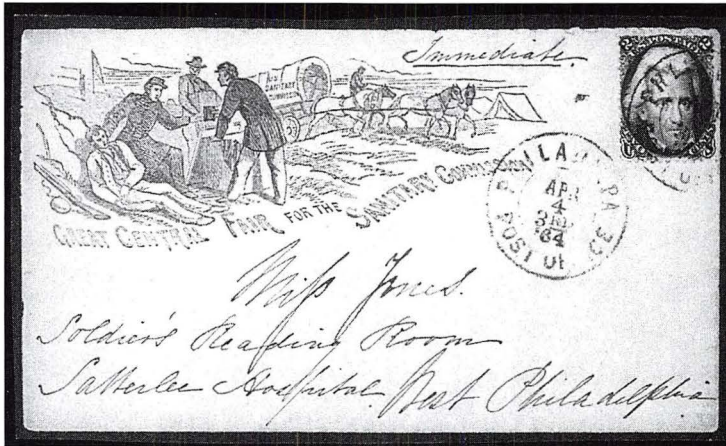 Immediate.
U.S.
SANITARY
COMMISSION
GREAT CENTRAL FAIR FOR THE SANITARY COMMISSION
PHILA
APR
4
'64
POST OF
Miss Jones.
Soldier's Reading Room
Satterlee Hospital. West Philadelphia